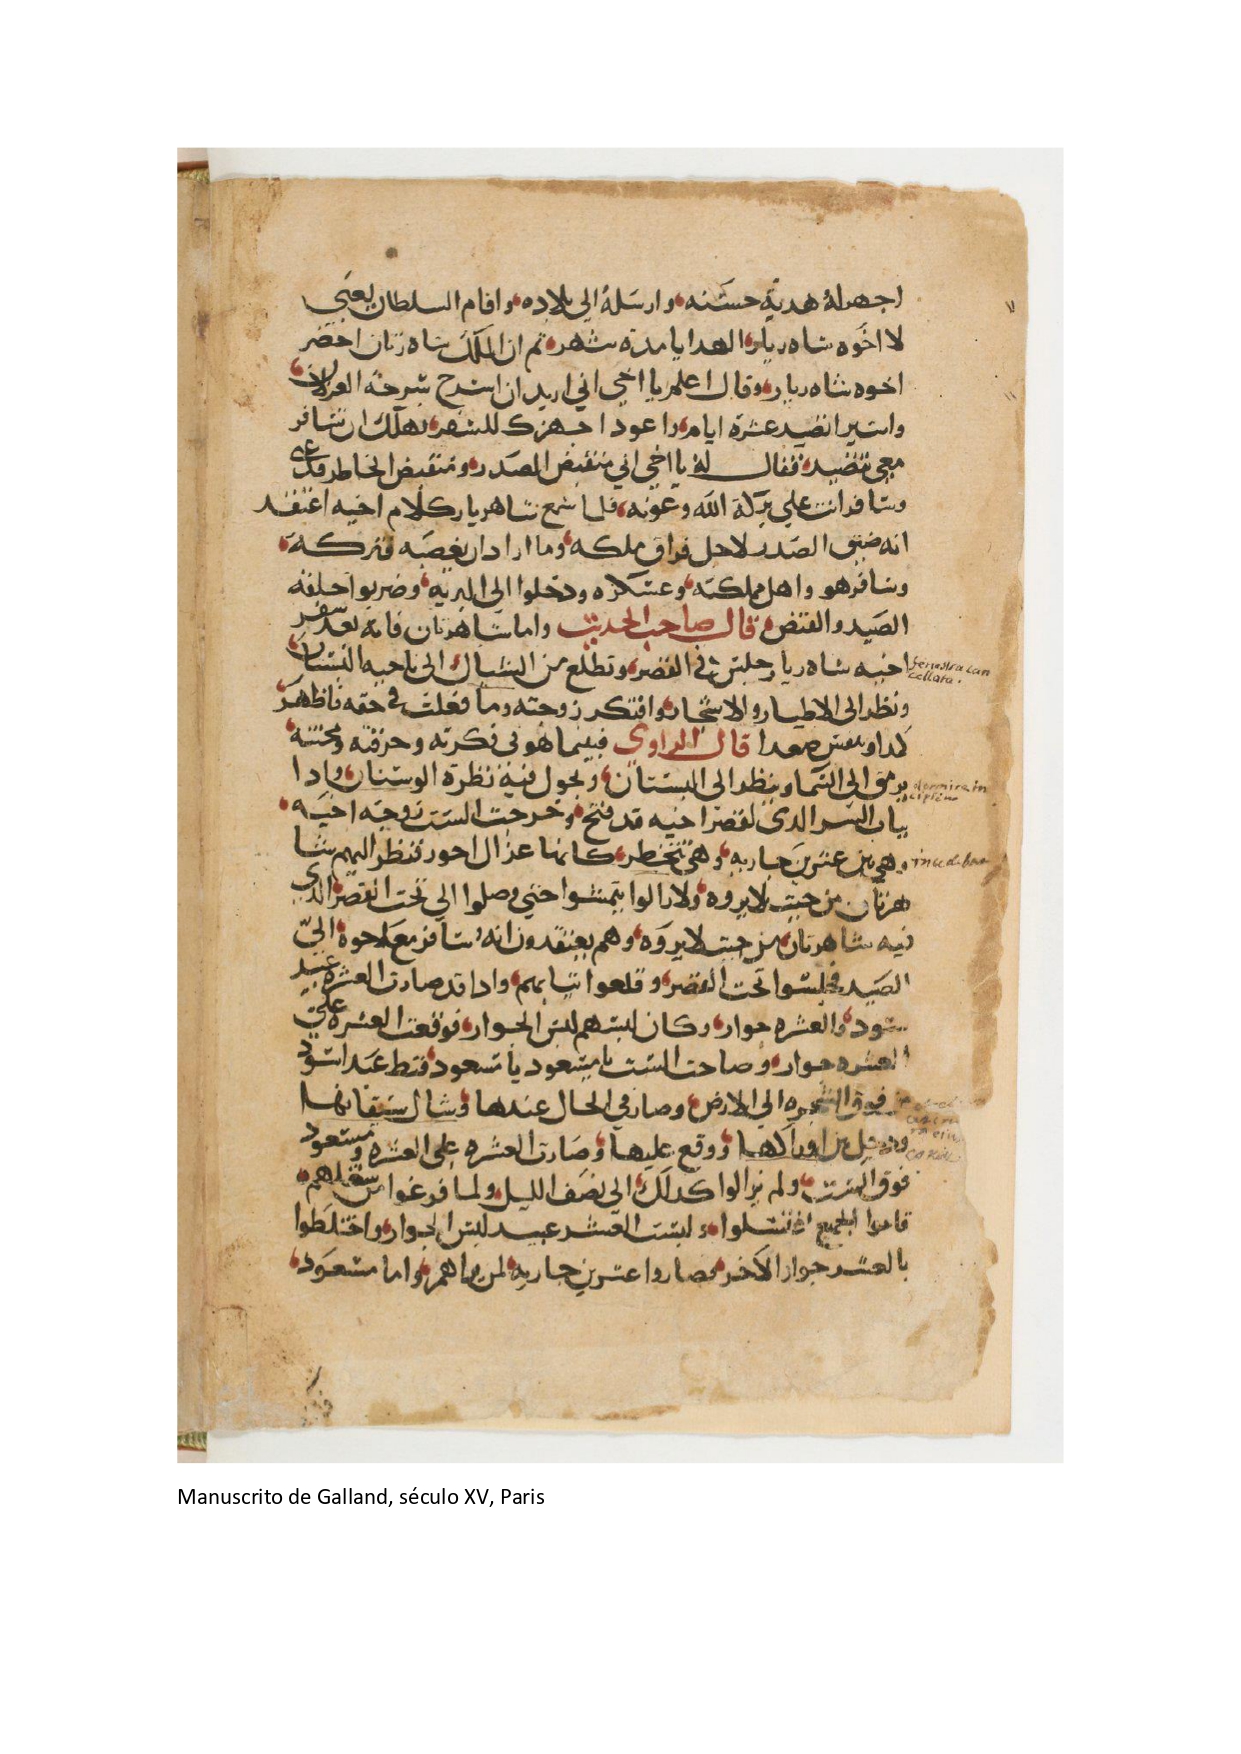 اجهزله هدية حسنه وارسله الى بلاده واقام السلطان يعبي
لااخوه شاه ريار الهدايا مدة شهر ثم ان الملك شاه زنان احضر
اخوه شاه ريار وقال اعلم يا اخي اني اريد ان اسرح سرحة الغزلان
واسير اتصيد عشرة ايام واعود اجهزك للسفر فهل لك ان تسافر
معي نتصيد فقال له يا اخي اني منقبض الصدر ومتقبض الخاطر فدعني
وسافر انت على بركة الله وعونه فلما سمع شاهريار كلام اخيه اعتقد
انه ضيق الصدر لاجل فراق ملكه وما اراد ان يغصبه فتركه
وسافر هو واهل مملكته وعسكره ودخلوا الى البريه وضربوا حلقة
الصيد والقنص قال صاحب الحديث واما شاهزنان فانه بعد سفر
اخيه شاه ريار جلس في القصر وتطلع من الشباك الى ناحيه البستان
fenestra can
cellata.
ونظر الى الاطيار والاشجار وافتكر زوجته وما فعلت في حقه فاظهر
كمدا وتنفس صعدا قال الراوي فبينما هو في فكرته وحرقته ومحنته
يرمق الى السما وينظر الى البستان ويجول فيه نظرة الوسنان واذا
dormire in
بباب السر الذي لقصر اخيه قد فتح وخرجت الست زوجة اخيه
وهي بين عشرين جاريه وهي تتخطر كانها غزال احور تنظر اليهم شا
هزنان من حيث لا يروه ولازالوا يتمشوا حتى وصلوا الى تحت القصر الذي
فيه شاهزنان من حيث لايروه وهم يعتقدون انه سافر مع اخوه الى
الصيد فجلسوا تحت القصر وقلعوا ثيابهم واذا قد صارت العشره عبيد
سود والعشره جوار وكان لبسهم لبس الجوار فوقعت العشره على
العشره جوار وصاحت الست يا مسعود يا مسعود فنط عبد اسود
من فوق الشجره الى الارض وصار في الحال عندها وشال سيقانها
ودخل بين اوراكها ووقع عليها وصارت العشره على العشره ومسعود
فوق الست ولم يزالوا كذلك الى نصف الليل ولما فرغوا من شغلهم
قاموا الجميع اغتسلوا ولبست العشر عبيد لبس الجوار واختلطوا
بالعشر جوار الاخر فصاروا عشرين جاريه لمن يراهم واما مسعود
Manuscrito de Galland, século XV, Paris